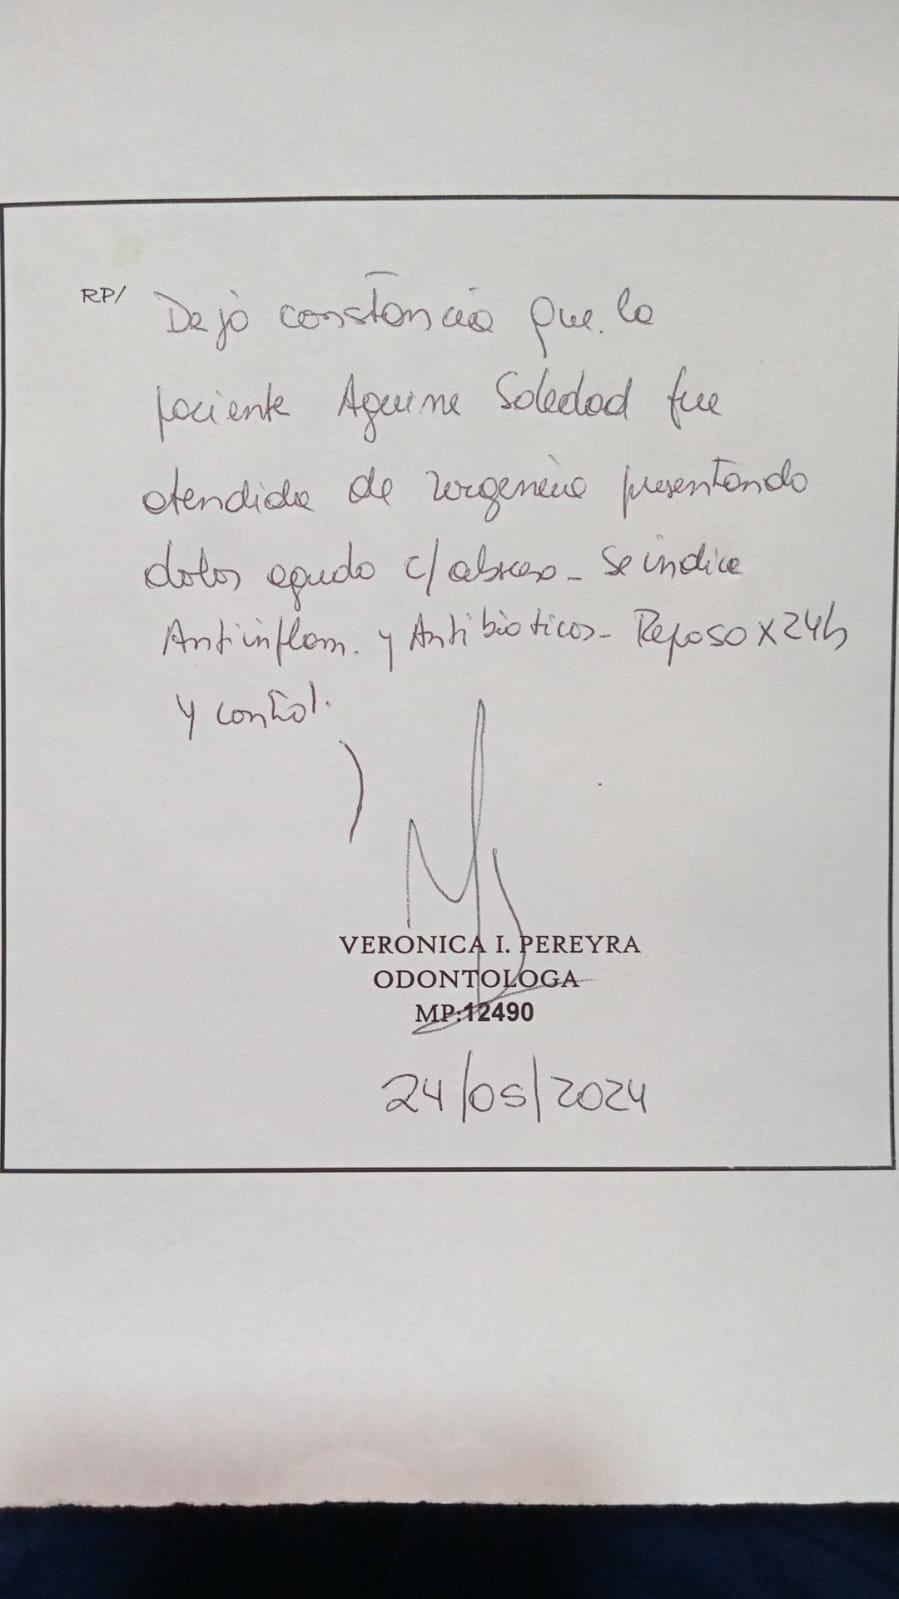 RP/ Dejo constancia que la
paciente Aguirre Soledad fue
atendida de urgencia presentando
dolor agudo c/absceso - Se indica
Antiinflam. y Antibióticos - Reposo x 24h
y control.
VERONICA I. PEREYRA
ODONTOLOGA
MP:12490
24/05/2024